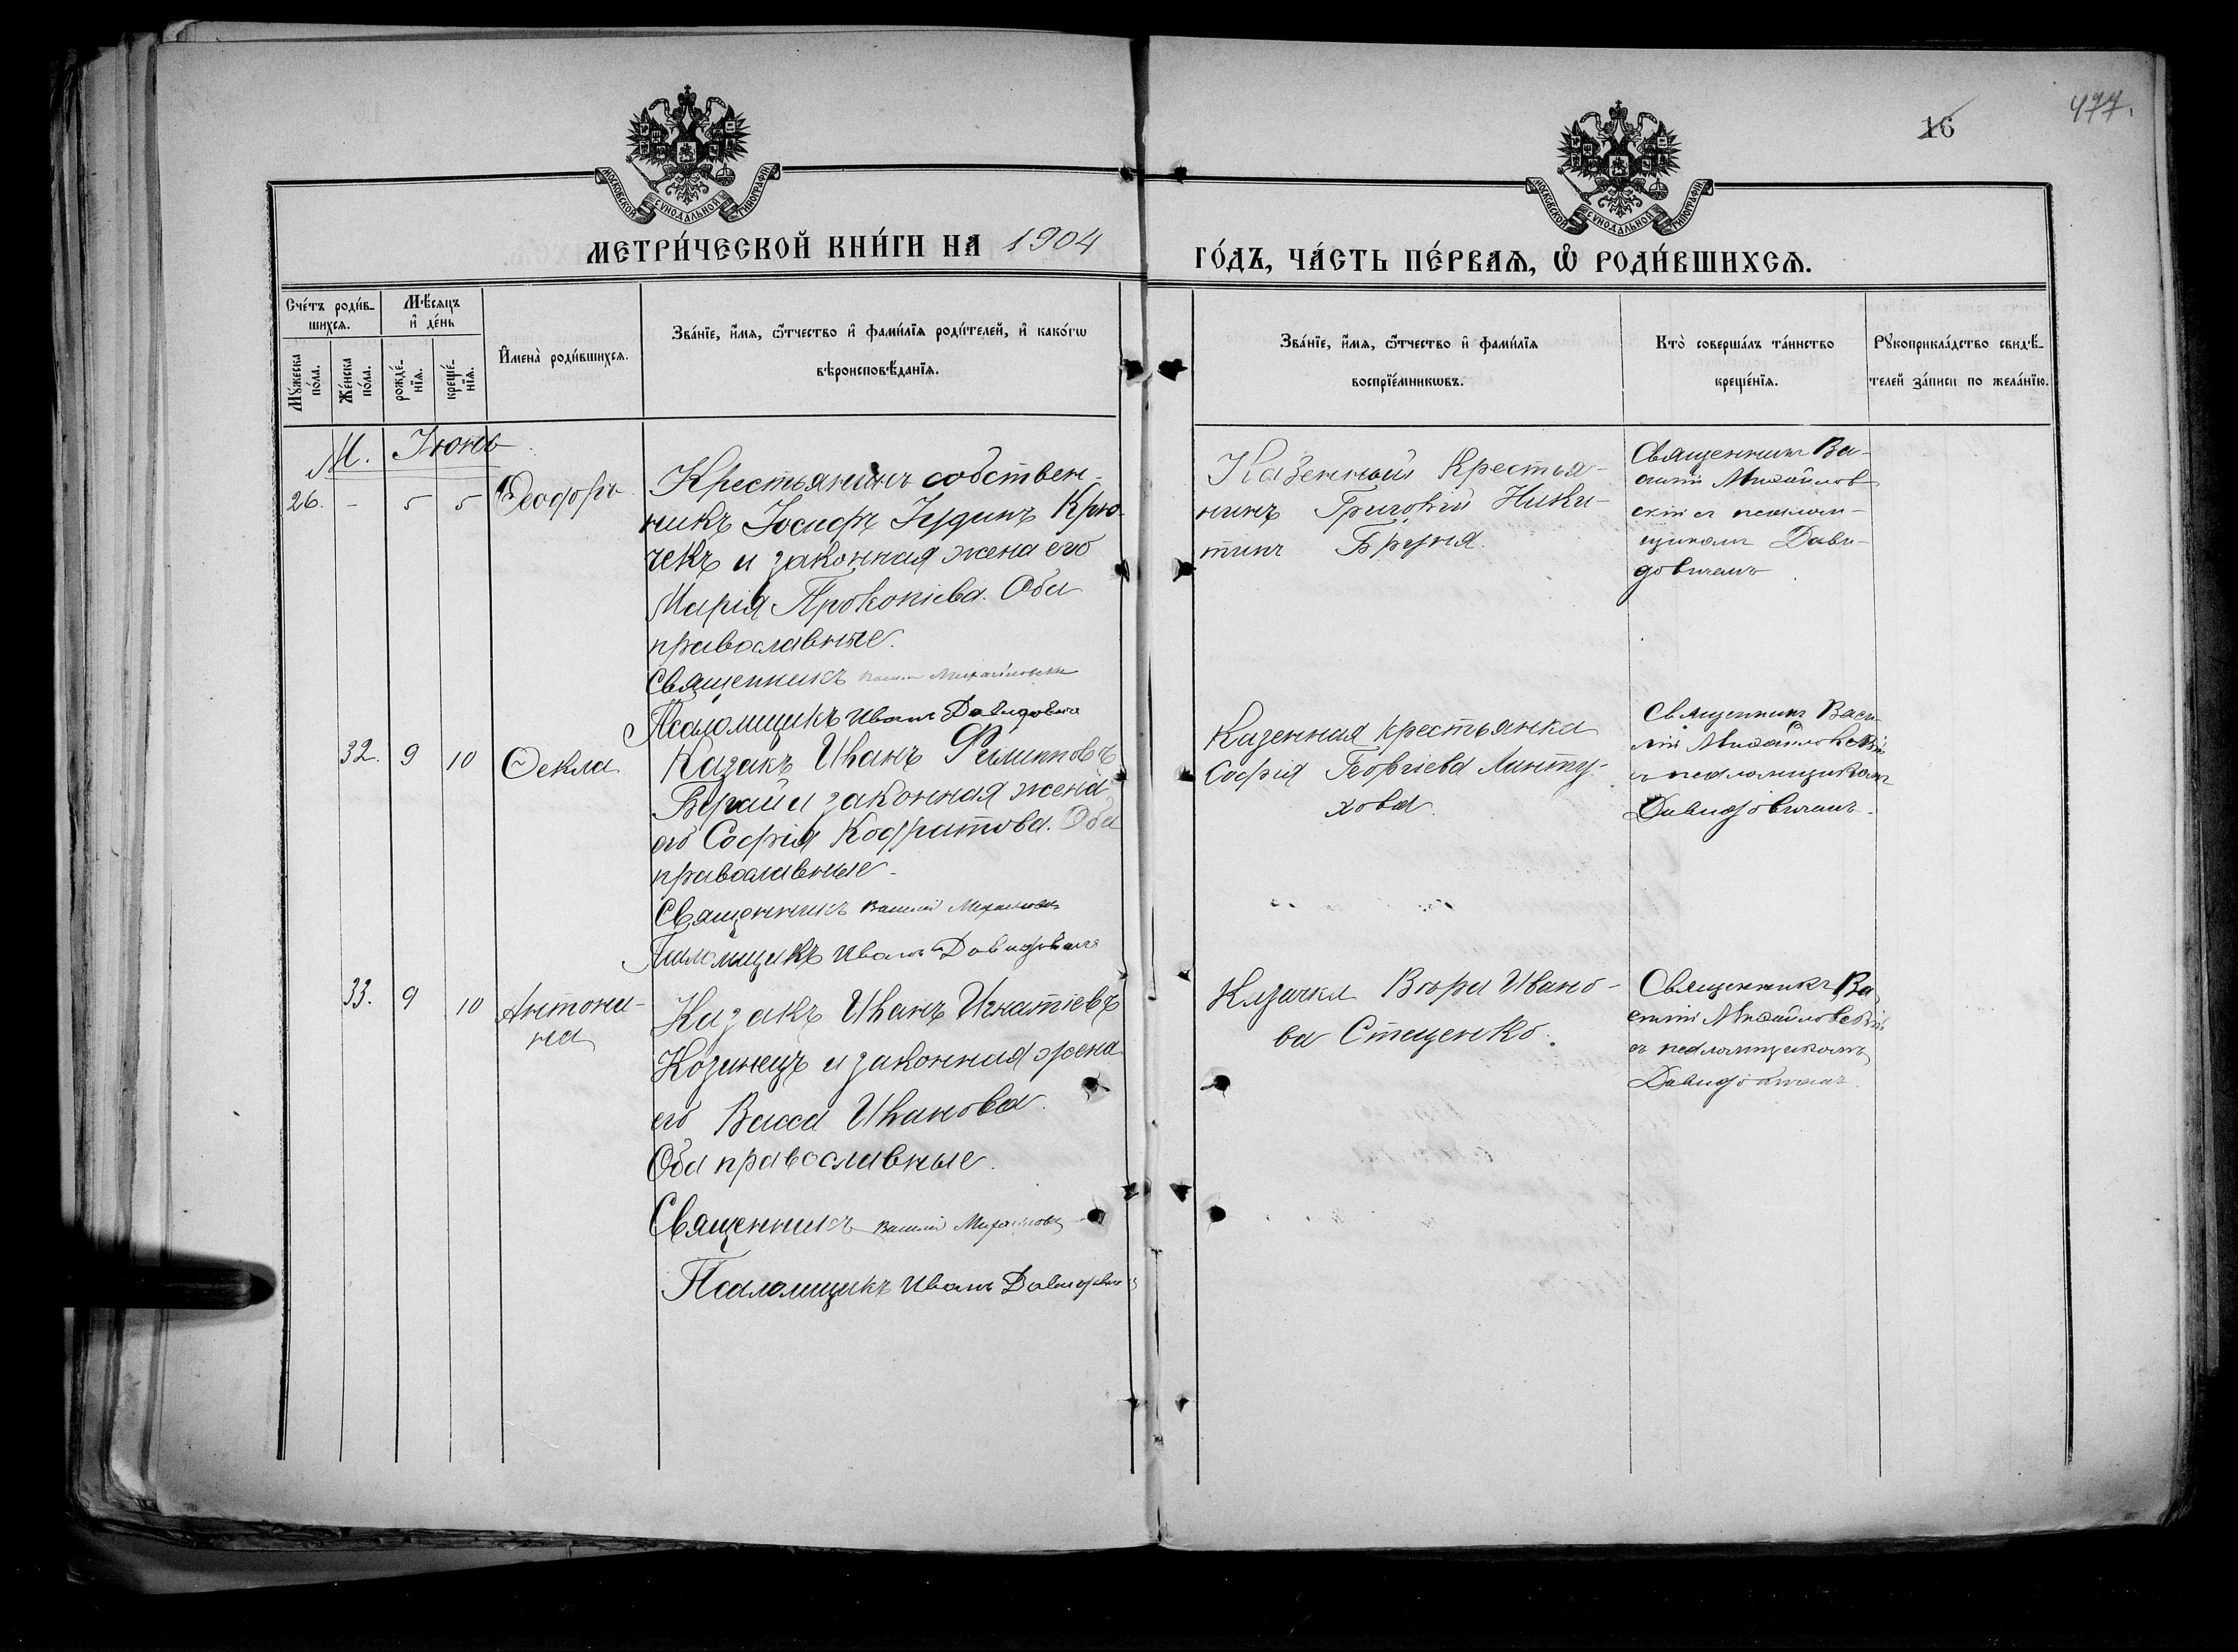 477.
16
МОСКОВСКОЙ СѴНОДАЛЬНОЙ ТИПОГРАФІИ
МОСКОВСКОЙ СѴНОДАЛЬНОЙ ТИПОГРАФІИ
МЕТРИ́ЧЕСКОЙ КНИ́ГИ НА 1904
ГО́ДЪ, ЧА́СТЬ ПЕ́РВАѦ, Ѡ҆ РОДИ́ВШИХСѦ.
Сче́тъ роди́в-
шихсѧ.
Мꙋ́жеска по́ла.
Же́нска по́ла.
Мѣ́сѧцъ
и҆ де́нь
рожде́-
нїѧ.
креще́-
нїѧ.
И҆мена̀ роди́вшихсѧ.
Зва́нїе, и҆́мѧ, ѻ҆́тчество и҆ фами́лїѧ роди́телей, и҆ како́гѡ
вѣроисповѣ́данїѧ.
Зва́нїе, и҆́мѧ, ѻ҆́тчество и҆ фами́лїѧ
воспрїе́мникѡвъ.
Кто̀ соверша́лъ та́инство
креще́нїѧ.
Рꙋкоприкла́дство свидѣ́-
телей за́писи по жела́нїю.
М. Іюнь
26. - 5 5
Крестьянинъ собствен-
никъ Іосифъ Іудинъ Крю-
чекъ и законная жена его
Марія Прокопіева. Оба
православные.
Священникъ Василій Михайловскій
Псаломщикъ Иванъ Давидовичъ
Казенный крестья-
нинъ Григорій Ники-
тинъ
Священникъ Ва-
силій Михайлов
скій съ псалом-
щикомъ Дави-
довичемъ.
32. 9 10 Ѳекла
Казакъ Иванъ Филипповъ
и законная жена
его Софія Кодратова. Оба
православные.
Священникъ Василій Михайловскій
Псаломщикъ Иванъ Давидовичъ
Казенная крестьянка
Софія Георгіева Линту-
хова.
Священникъ Васи-
лій Михайловскій
съ псаломщикомъ
Давидовичемъ.
33. 9 10 Антони-
на
Казакъ Иванъ Игнатіевъ
Козинецъ и законная жена
его Васса Иванова.
Оба православные.
Священникъ Василій Михайловскій
Псаломщикъ Иванъ Давидовичъ
Казачка Вѣра Ивано-
ва Стеценко.
Священникъ Ва
силій Михайловскій
съ псаломщикомъ
Давидовичемъ.